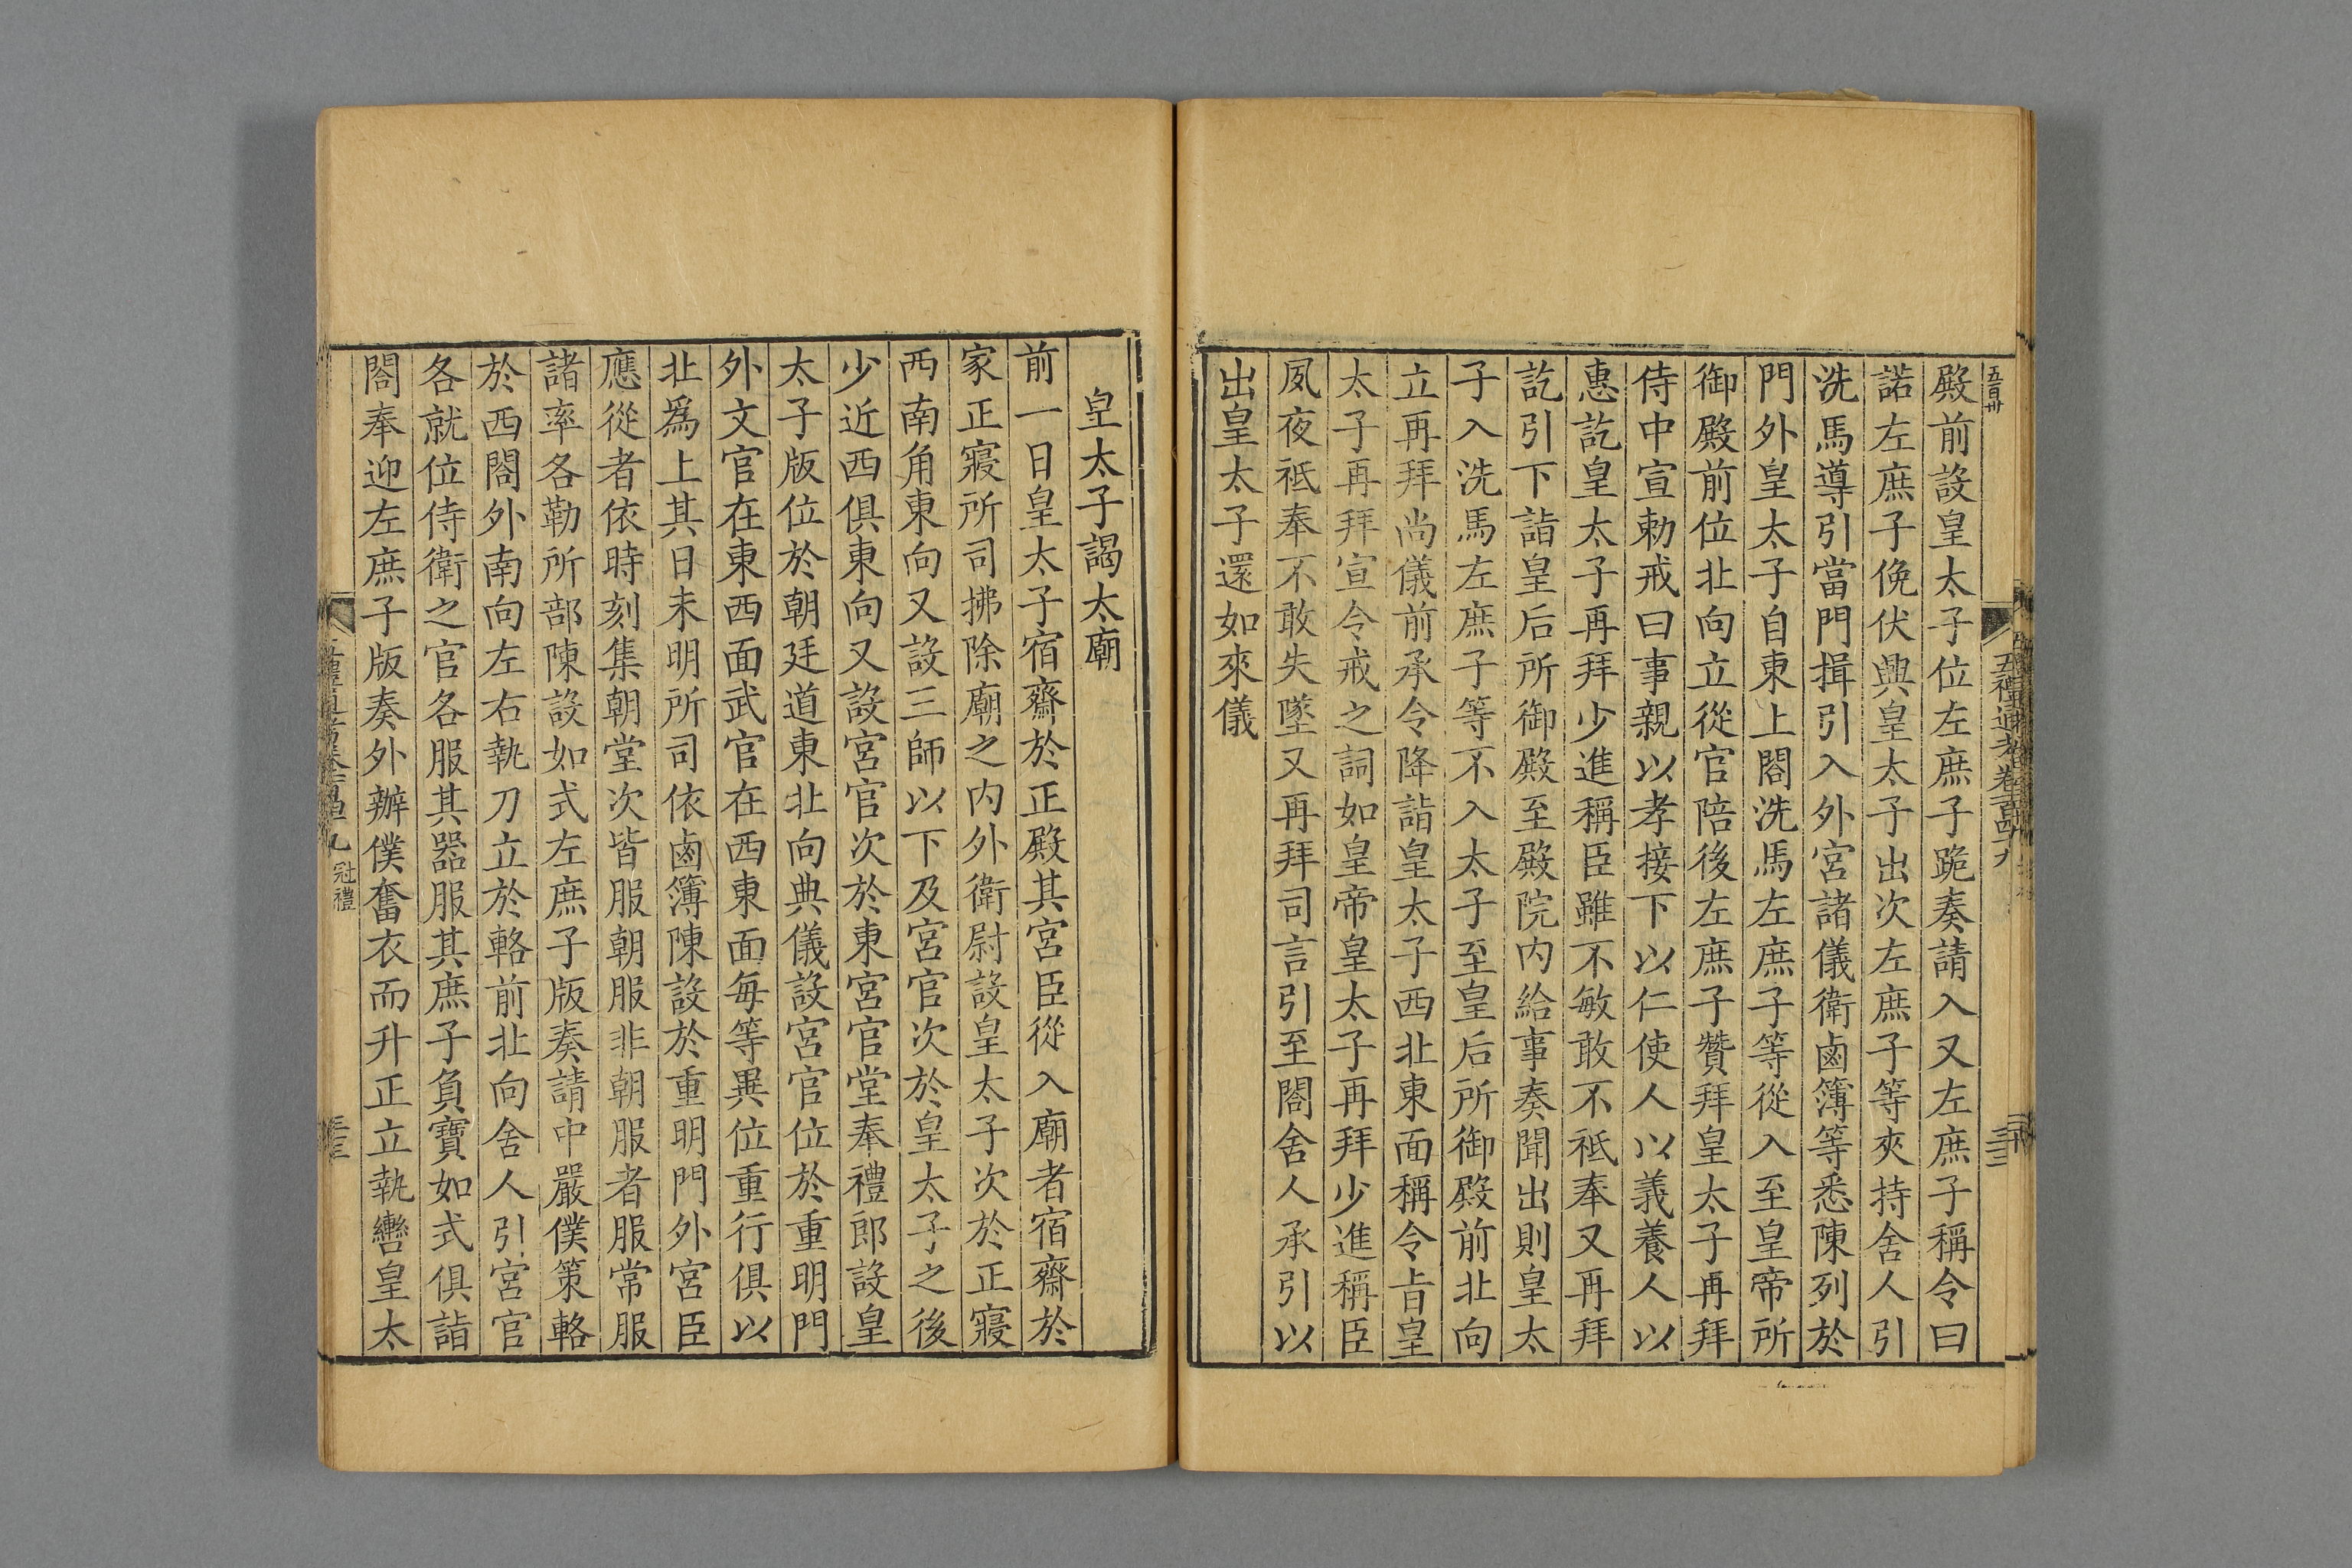 五百卅
五禮通考卷一百四十九
殿前設皇太子位左庶子跪奏請入又左庶子稱令曰
諾左庶子俛伏興皇太子出次左庶子等夾持舍人引
洗馬導引當門揖引入外宮諸儀衛鹵簿等悉陳列於
門外皇太子自東上閤洗馬左庶子等從入至皇帝所
御殿前位北向立從官陪後左庶子贊拜皇太子再拜
侍中宣勅戒曰事親以孝接下以仁使人以義養人以
惠訖皇太子再拜少進稱臣雖不敏敢不祗奉又再拜
訖引下詣皇后所御殿至殿院内給事奏聞出則皇太
子入洗馬左庶子等不入太子至皇后所御殿前北向
立再拜尚儀前承令降詣皇太子西北東面稱令㫖皇
太子再拜宣令戒之詞如皇帝皇太子再拜少進稱臣
夙夜祗奉不敢失墜又再拜司言引至閤舍人承引以
出皇太子還如來儀
皇太子謁太廟
前一日皇太子宿齋於正殿其宮臣從入廟者宿齋於
家正寢所司拂除廟之内外衛尉設皇太子次於正寢
西南角東向又設三師以下及宮官次於皇太子之後
少近西俱東向又設宮官次於東宮官堂奉禮郎設皇
太子版位於朝廷道東北向典儀設宮官位於重明門
外文官在東西面武官在西東面每等異位重行俱以
北爲上其日未明所司依鹵簿陳設於重明門外宮臣
應從者依時刻集朝堂次皆服朝服非朝服者服常服
諸率各勒所部陳設如式左庶子版奏請中嚴僕策輅
於西閤外南向左右執刀立於輅前北向舍人引宮官
各就位侍衛之官各服其器服其庶子負寶如式俱詣
閤奉迎左庶子版奏外辦僕奮衣而升正立執轡皇太
冠禮